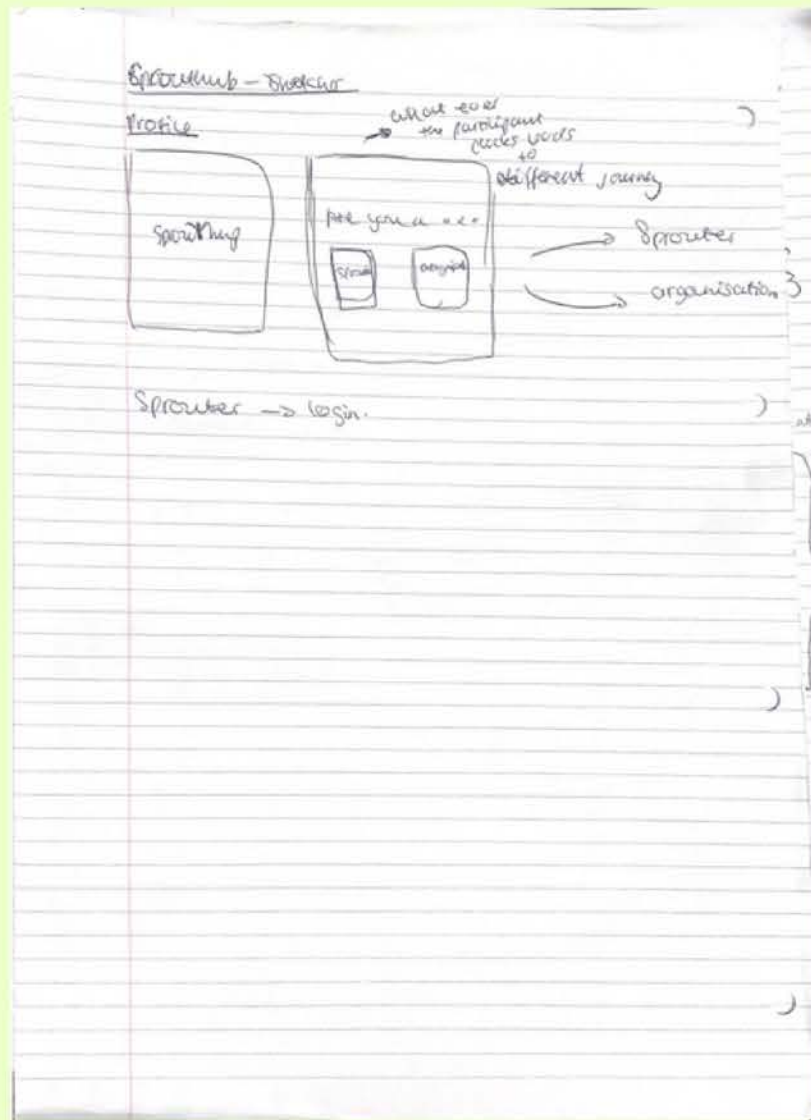 Sprouthub -
Profile
what ever
the participant
picks leads
to
different journey
Sprouthug
Are you a ...
Sprouter
organisation
Sprouter -> login.